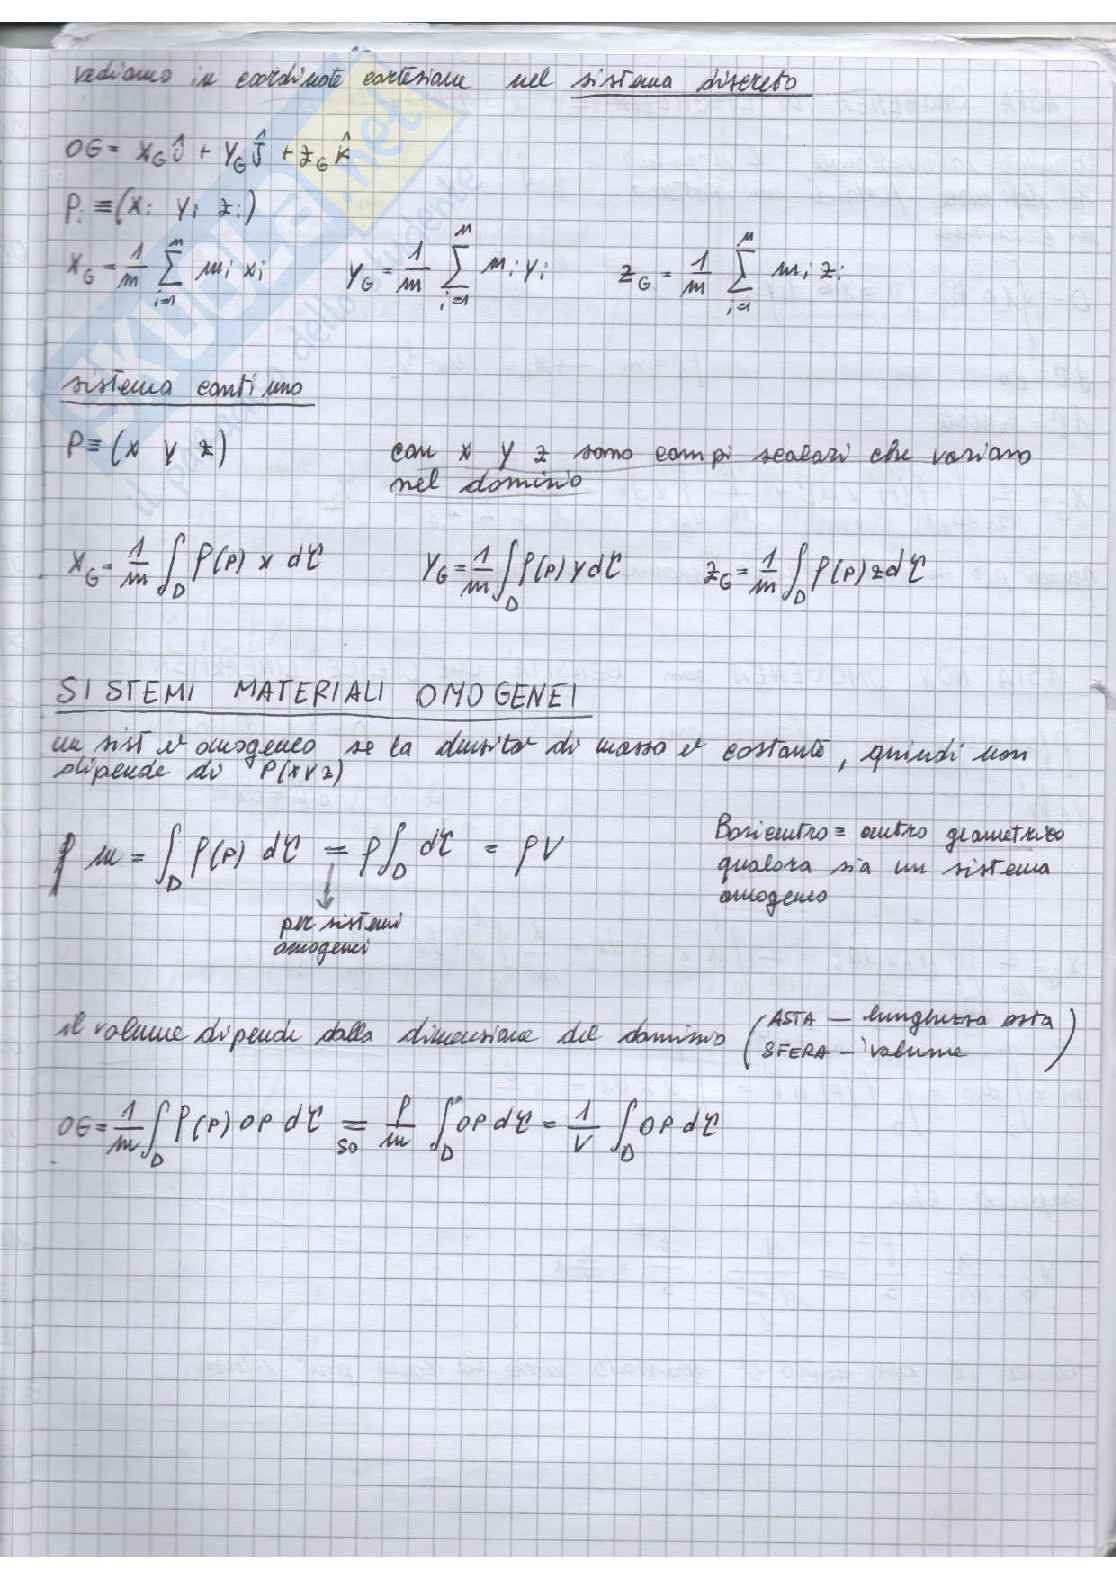 vediamo in coordinate cartesiane nel sistema discreto
OG = x_G î + y_G ĵ + z_G k̂
P_i ≡ (x_i y_i z_i)
x_G = 1/m ∑_{i=1}^{n} m_i x_i   y_G = 1/m ∑_{i=1}^{n} m_i y_i   z_G = 1/m ∑_{i=1}^{n} m_i z_i
sistema continuo
P ≡ (x y z)   con x y z sono campi scalari che variano
nel dominio
x_G = 1/m ∫_D ρ(P) x dτ   y_G = 1/m ∫_D ρ(P) y dτ   z_G = 1/m ∫_D ρ(P) z dτ
SISTEMI MATERIALI OMOGENEI
un sist è omogeneo se la densità di massa è costante, quindi non
dipende di P(x y z)
m = ∫_D ρ(P) dτ = ρ ∫_D dτ = ρV
per sistemi
omogenei
Baricentro ≡ centro geometrico
qualora sia un sistema
omogeneo
il volume dipende dalla dimensione del dominio (ASTA – lunghezza asta
SFERA – volume)
OG = 1/m ∫_D ρ(P) OP dτ =_{SO} ρ/m ∫_D OP dτ = 1/V ∫_D OP dτ
SKUOLA.net